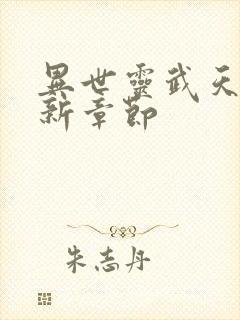 異世靈武天
新章節
朱志丹